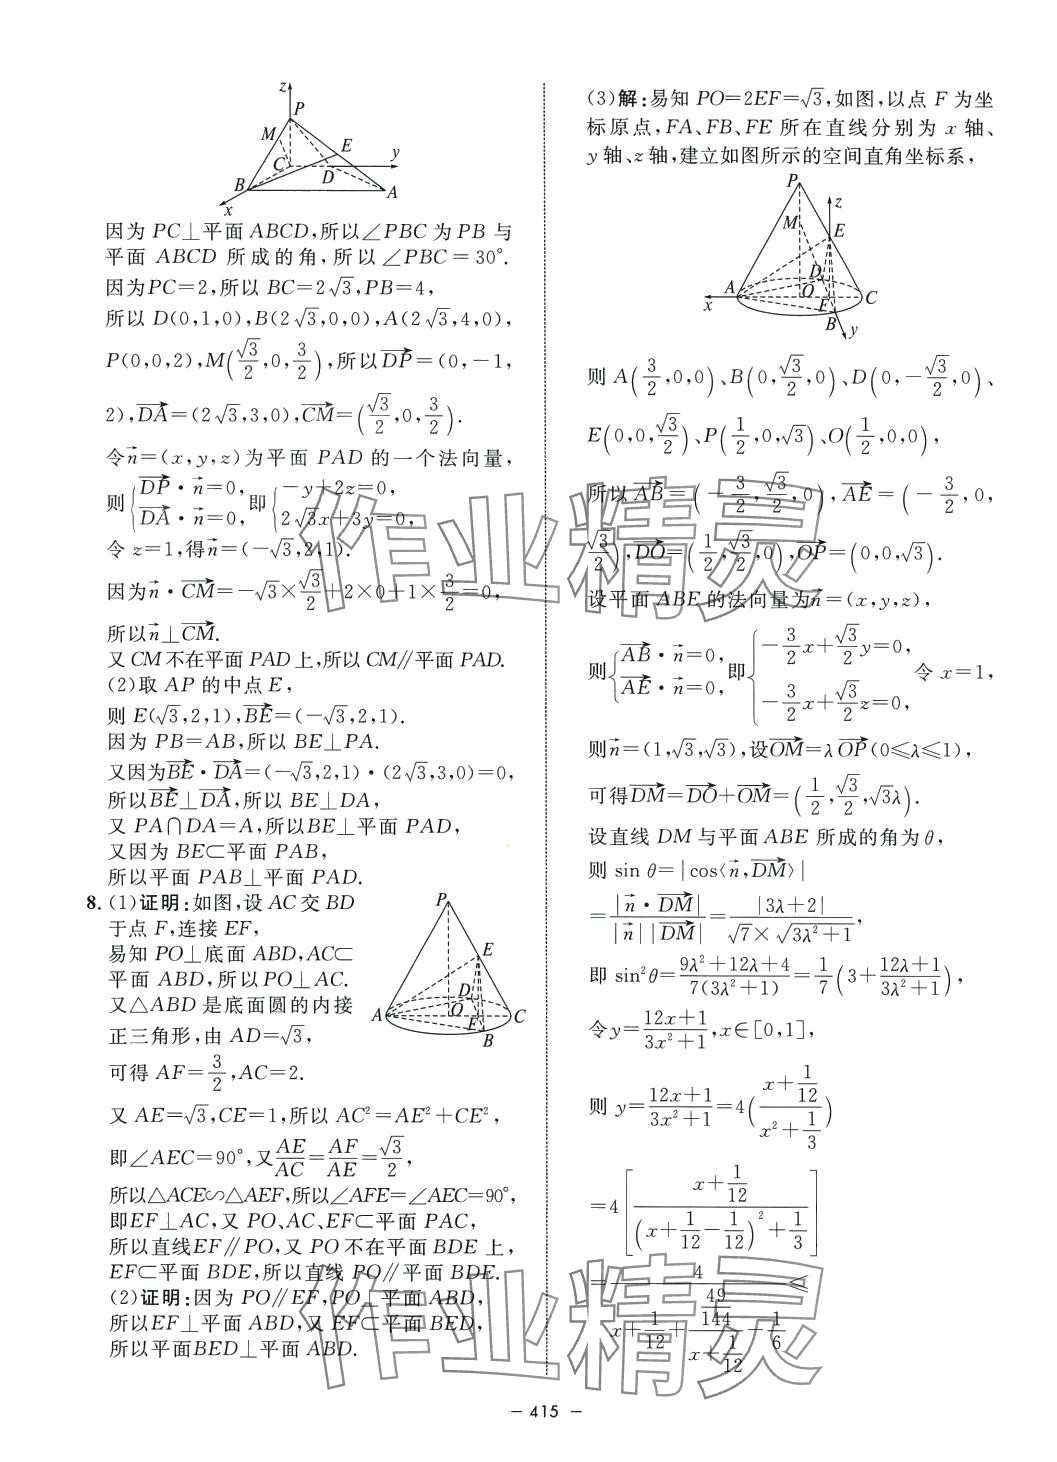 z
P
M
E
y
C
D
B
A
x
因为 PC⊥平面 ABCD,所以∠PBC 为 PB 与
平面 ABCD 所成的角,所以∠PBC=30°.
因为PC=2,所以 BC=2√3,PB=4,
所以 D(0,1,0),B(2√3,0,0),A(2√3,4,0),
P(0,0,2),M(√3/2,0,3/2),所以DP→=(0,-1,
2),DA→=(2√3,3,0),CM→=(√3/2,0,3/2).
令n→=(x,y,z)为平面 PAD 的一个法向量,
则{DP→·n→=0, DA→·n→=0,即{-y+2z=0, 2√3x+3y=0,
令 z=1,得n→=(-√3,2,1).
因为n→·CM→=-√3×√3/2+2×0+1×3/2=0,
所以n→⊥CM→.
又CM不在平面 PAD 上,所以 CM∥平面 PAD.
(2)取 AP 的中点 E,
则 E(√3,2,1),BE→=(-√3,2,1).
因为 PB=AB,所以 BE⊥PA.
又因为BE→·DA→=(-√3,2,1)·(2√3,3,0)=0,
所以BE→⊥DA→,所以 BE⊥DA,
又 PA∩DA=A,所以BE⊥平面 PAD,
又因为 BE⊂平面 PAB,
所以平面 PAB⊥平面 PAD.
8. (1)证明:如图,设 AC 交 BD
于点 F,连接 EF,
易知 PO⊥底面 ABD,AC⊂
平面 ABD,所以PO⊥AC.
又△ABD 是底面圆的内接
正三角形,由 AD=√3,
可得 AF=3/2,AC=2.
P
E
D
A
O
F
C
B
又 AE=√3,CE=1,所以 AC²=AE²+CE²,
即∠AEC=90°,又AE/AC=AF/AE=√3/2,
所以△ACE∽△AEF,所以∠AFE=∠AEC=90°,
即EF⊥AC,又 PO、AC、EF⊂平面 PAC,
所以直线EF∥PO,又 PO 不在平面 BDE 上,
EF⊂平面 BDE,所以直线 PO∥平面 BDE.
(2)证明:因为 PO∥EF,PO⊥平面 ABD,
所以EF⊥平面 ABD,又 EF⊂平面 BED,
所以平面BED⊥平面 ABD.
(3)解:易知 PO=2EF=√3,如图,以点 F 为坐
标原点,FA、FB、FE 所在直线分别为 x 轴、
y轴、z轴,建立如图所示的空间直角坐标系,
P
z
M
E
D
A
O
F
C
x
B
y
则 A(3/2,0,0)、B(0,√3/2,0)、D(0,-√3/2,0)、
E(0,0,√3/2)、P(1/2,0,√3)、O(1/2,0,0),
所以 AB→=(-3/2,√3/2,0),AE→=(-3/2,0,
√3/2),DO→=(1/2,√3/2,0),OP→=(0,0,√3).
设平面 ABE 的法向量为n→=(x,y,z),
则{AB→·n→=0, AE→·n→=0,即{-3/2x+√3/2y=0, -3/2x+√3/2z=0,令 x=1,
则n→=(1,√3,√3),设OM→=λOP→(0≤λ≤1),
可得DM→=DO→+OM→=(1/2,√3/2,√3λ).
设直线 DM 与平面 ABE 所成的角为θ,
则 sin θ=|cos⟨n→,DM→⟩|
=|n→·DM→|/|n→||DM→|=|3λ+2|/(√7×√(3λ²+1)),
即 sin²θ=(9λ²+12λ+4)/(7(3λ²+1))=1/7(3+(12λ+1)/(3λ²+1)),
令y=(12x+1)/(3x²+1),x∈[0,1],
则 y=(12x+1)/(3x²+1)=4((x+1/12)/(x²+1/3))
=4[(x+1/12)/((x+1/12-1/12)²+1/3)]
=4/(x+1/12+(49/144)/(x+1/12)-1/6)≤
作业精灵
作业精灵
- 415 -